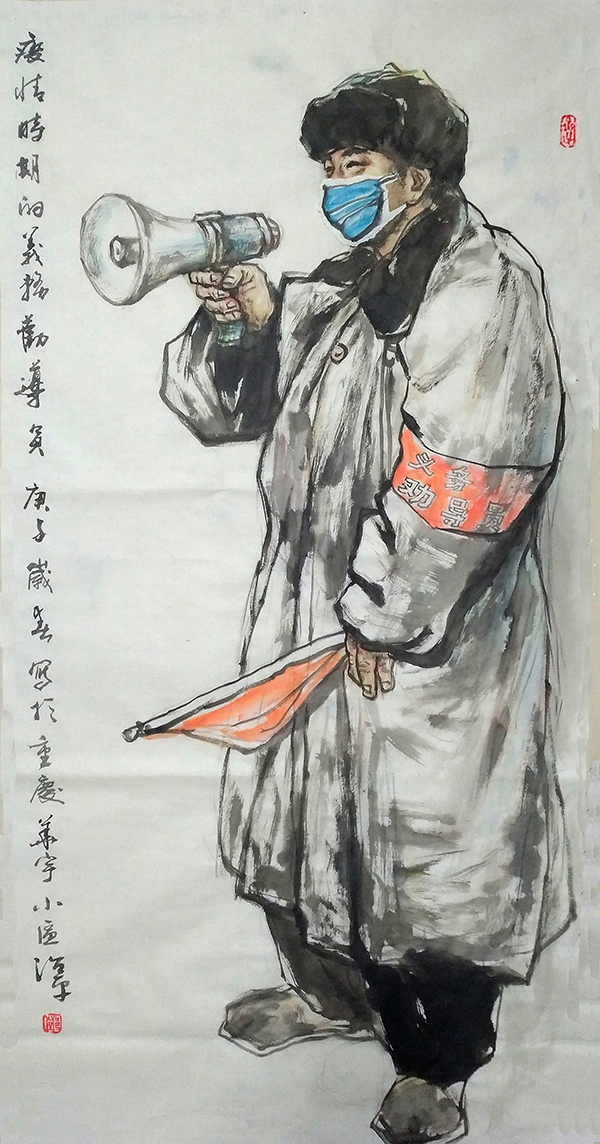 疫情時期的義務勸導員 庚子歲春 寫於重慶華宇小區
义务
劝导员